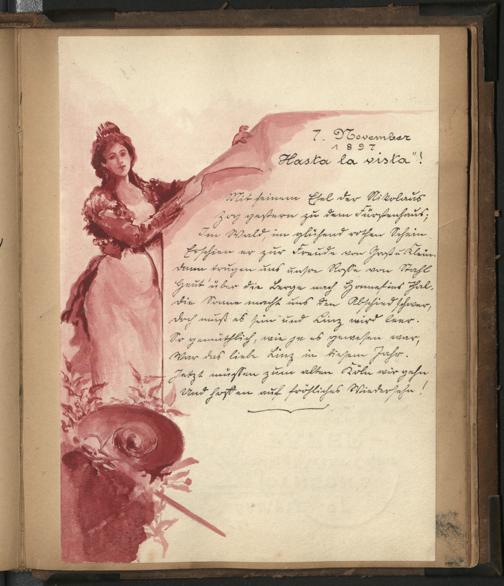 7. November
1897
"Hasta la vista"!
Mit seinem Esel der Nikolaus
Zog gestern zu dem Fürstenhaus;
Im Wald, im glühend rothen Schein
Erschien er zur Freude von Groß u Klein
Dann trugen uns unsre Rosse von Stahl
Heut über die Berge nach Honnefins Thal
Die Sonne macht uns den Abschied schwer,
Doch muß es sein und Linz wird leer.
So gemüthlich, wie je es gewesen war,
War das liebe Linz in diesem Jahr.
Jetzt müssen zum alten Köln wir gehn
Und hoffen auf fröhliches Wiedersehn!